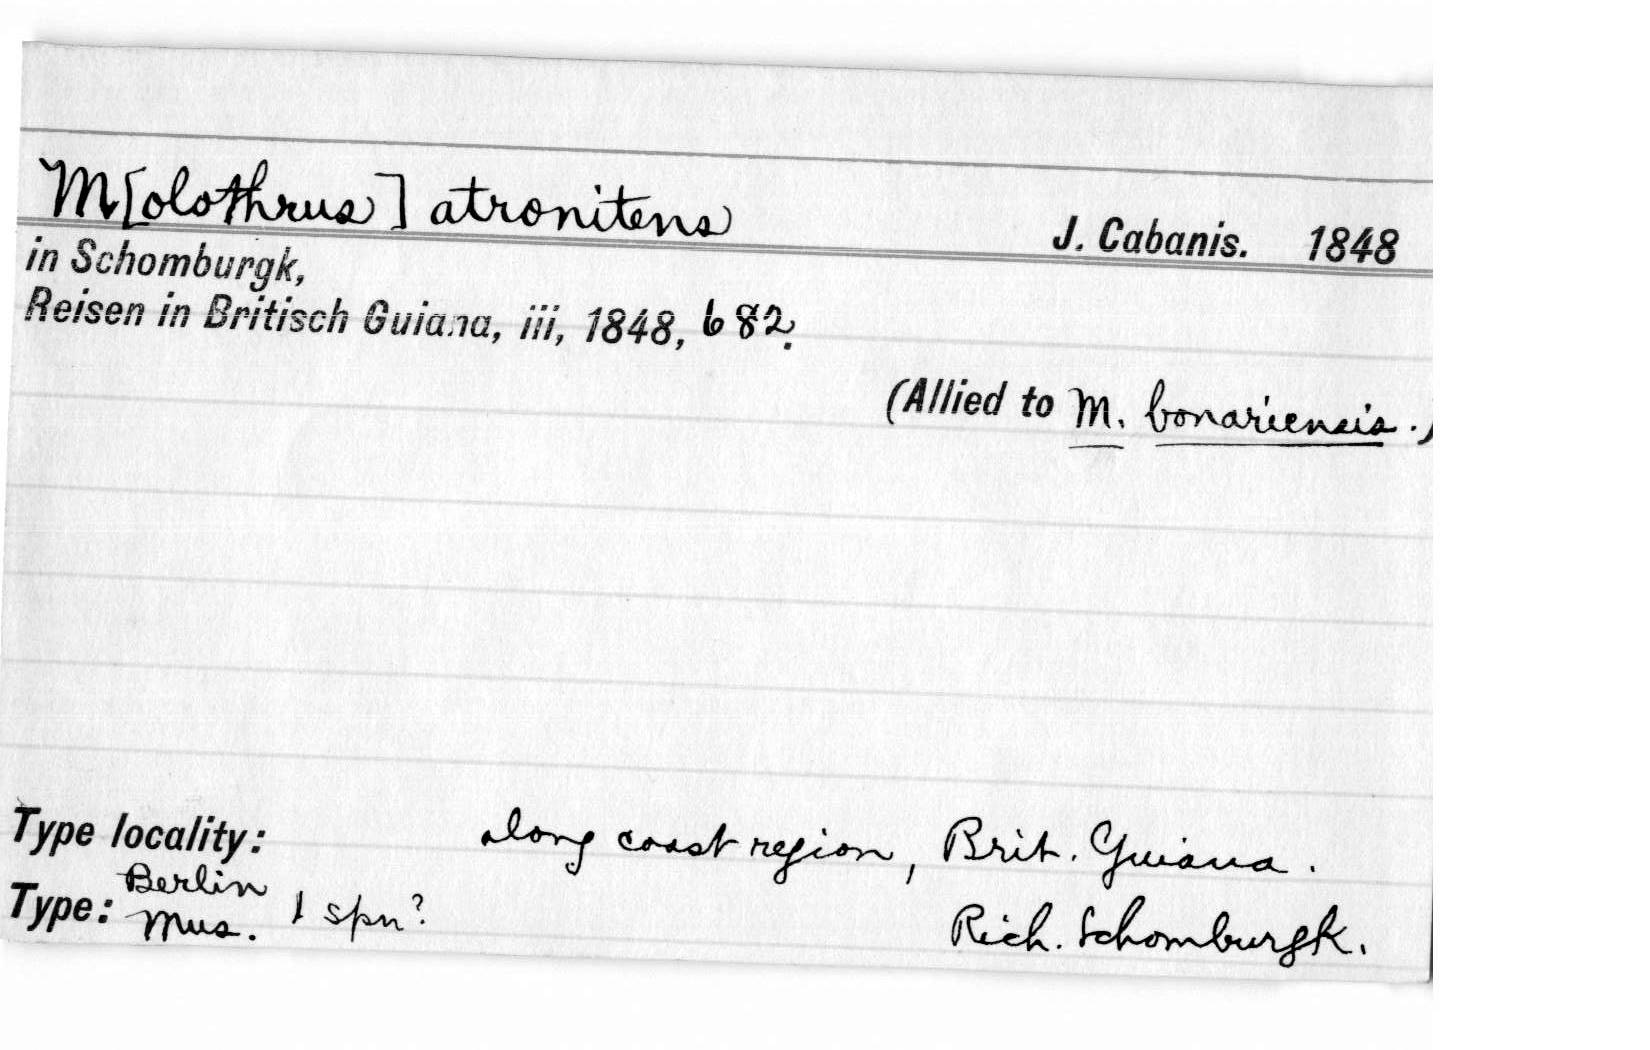 M[olothrus] atronitens J. Cabanis. 1848
in Schomburgk,
Reisen in Britisch Guiana, iii, 1848, 682.
(Allied to M. bonariensis.)
Type locality: along coast region, Brit. Guiana.
Type: Berlin Mus. 1 spn? Rich. Schomburgk.